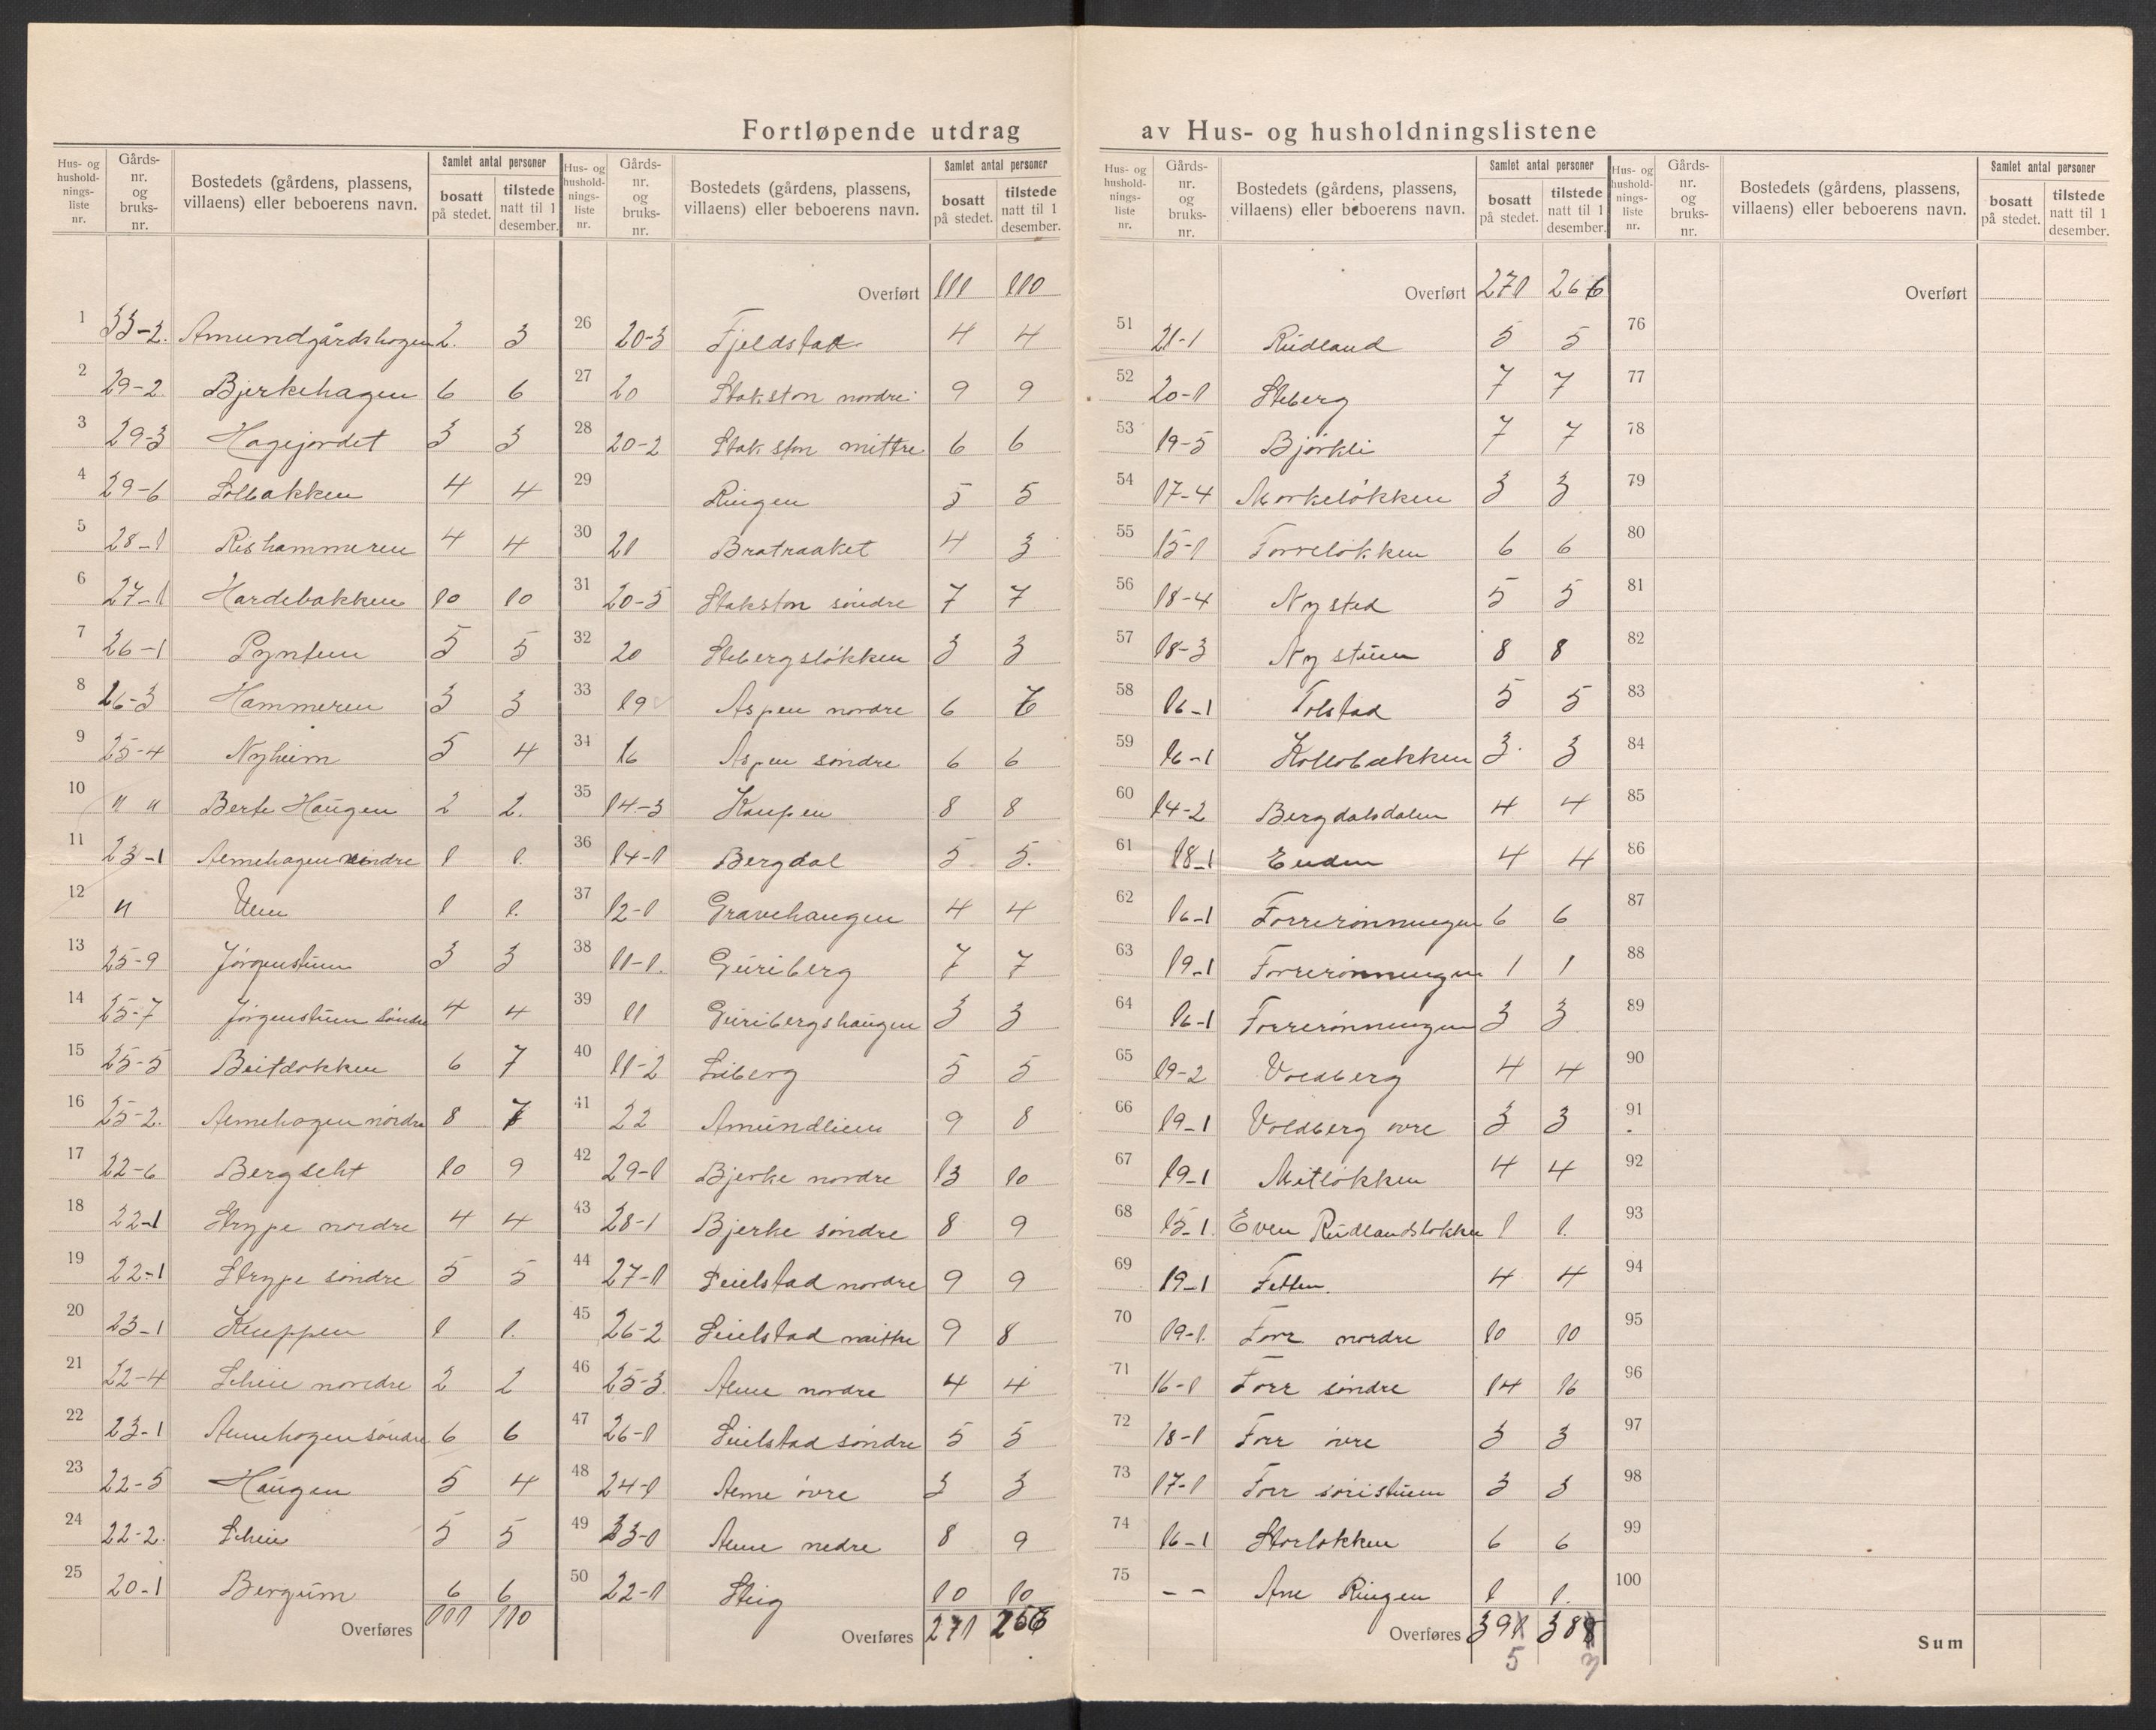 Fortløpende utdrag av Hus- og husholdningslistene
Hus- og hushold-nings-liste nr. | Gårds-nr. og bruks-nr. | Bostedets (gårdens, plassens, villaens) eller beboerens navn. | Samlet antal personer bosatt på stedet. | tilstede natt til 1 desember.
1 33-2. Amundgårdshagen 2. 3
2 29-2 Bjerkehagen 6 6
3 29-3 Hagejordet 3 3
4 29-6 Solbakken 4 4
5 28-1 Rishammeren 4 4
6 27-1 Hardebakken 10 10
7 26-1 Pynten 5 5
8 26-3 Hammeren 3 3
9 25-4 Nyheim 5 4
10 " " Berte Haugen 2 2.
11 23-1 1 1.
12 " 1 1.
13 25-9 Jørgenstuen 3 3
14 25-7 Jørgenstuen søndre 4 4
15 25-5 Beitdokken 6 7
16 25-2. Aemehagen nordre 8 7
17 22-6 Bergseht 10 9
18 22-1 Strype nordre 4 4
19 22-1 Strype søndre 5 5
20 23-1 Kneppen 1 1.
21 22-4 Scheie nordre 2 2
22 23-1 Aemehagen søndre 6 6
23 22-5 Haugen 5 4
24 22-2. Scheie 5 5
25 20-1 Bergum 6 6
Overføres 111 110
Hus- og hushold-nings-liste nr. | Gårds-nr. og bruks-nr. | Bostedets (gårdens, plassens, villaens) eller beboerens navn. | Samlet antal personer bosatt på stedet. | tilstede natt til 1 desember.
Overført 111 110
26 20-3 Fjeldstad 4 4
27 20 Stakston nordre 9 9
28 20-2 Stakston mittre 6 6
29 Ringen 5 5
30 21 Bratraaket 4 3
31 20-5 Stakston søndre 7 7
32 20 Stebergsløkken 3 3
33 19 Aspen nordre 6 6
34 16 Aspen søndre 6 6
35 14-3 Kampen 8 8
36 14-1 Bergdal 5 5.
37 12-1 Gravehaugen 4 4
38 11-1. Guriberg 7 7
39 11 Guribergshaugen 3 3
40 11-2 Liberg 5 5
41 22 Amundlien 9 8
42 29-1 Bjerke nordre 13 10
43 28-1 Bjerke søndre 8 9
44 27-1 Seielstad nordre 9 9
45 26-2 Seielstad mittre 9 8
46 25-3. Aeme nordre 4 4
47 26-1 Seielstad søndre 5 5
48 24-1 Aeme øvre 3 3
49 33-1 Aeme nedre 8 9
50 22-1 Steig 10 10
Overføres 271 266
Hus- og hushold-nings-liste nr. | Gårds-nr. og bruks-nr. | Bostedets (gårdens, plassens, villaens) eller beboerens navn. | Samlet antal personer bosatt på stedet. | tilstede natt til 1 desember.
Overført 271 266
51 21-1 Rudland 5 5
52 20-1 Steberg 7 7
53 19-5 Bjørkli 7 7
54 17-4 Mørkeløkken 3 3
55 15-1 Forreløkken 6 6
56 18-4 Nysted 5 5
57 18-3 Nystuen 8 8
58 16-1 Tolstad 5 5
59 16-1 Kollobækken 3 3
60 14-2 Bergdalsdalen 4 4
61 18-1 Enden 4 4
62 16-1 Forrerønningen 6 6
63 19-1 Forrerønningen 1 1
64 16-1 Forrerønningen 3 3
65 19-2 Voldberg 4 4
66 19-1 Voldberg øvre 3 3
67 19-1 Mitløkken 4 4
68 15-1. Even Rudlandsløkken 1 1.
69 19-1 Fetten. 4 4
70 19-1. Forr nordre 10 10
71 16-1 Forr søndre 14 16
72 18-1 Forr øvre 3 3
73 17-1 Forr søristuen 3 3
74 16-1 Storløkken 6 6
75 - - Ane Ringen 1 1.
Overføres 391 388
5
Hus- og hushold-nings-liste nr. | Gårds-nr. og bruks-nr. | Bostedets (gårdens, plassens, villaens) eller beboerens navn. | Samlet antal personer bosatt på stedet. | tilstede natt til 1 desember.
Overført
76
77
78
79
80
81
82
83
84
85
86
87
88
89
90
91
92
93
94
95
96
97
98
99
100
Sum